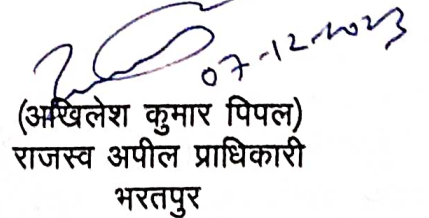 07-12-2023
(अखिलेश कुमार पिपल)
राजस्व अपील प्राधिकारी
भरतपुर